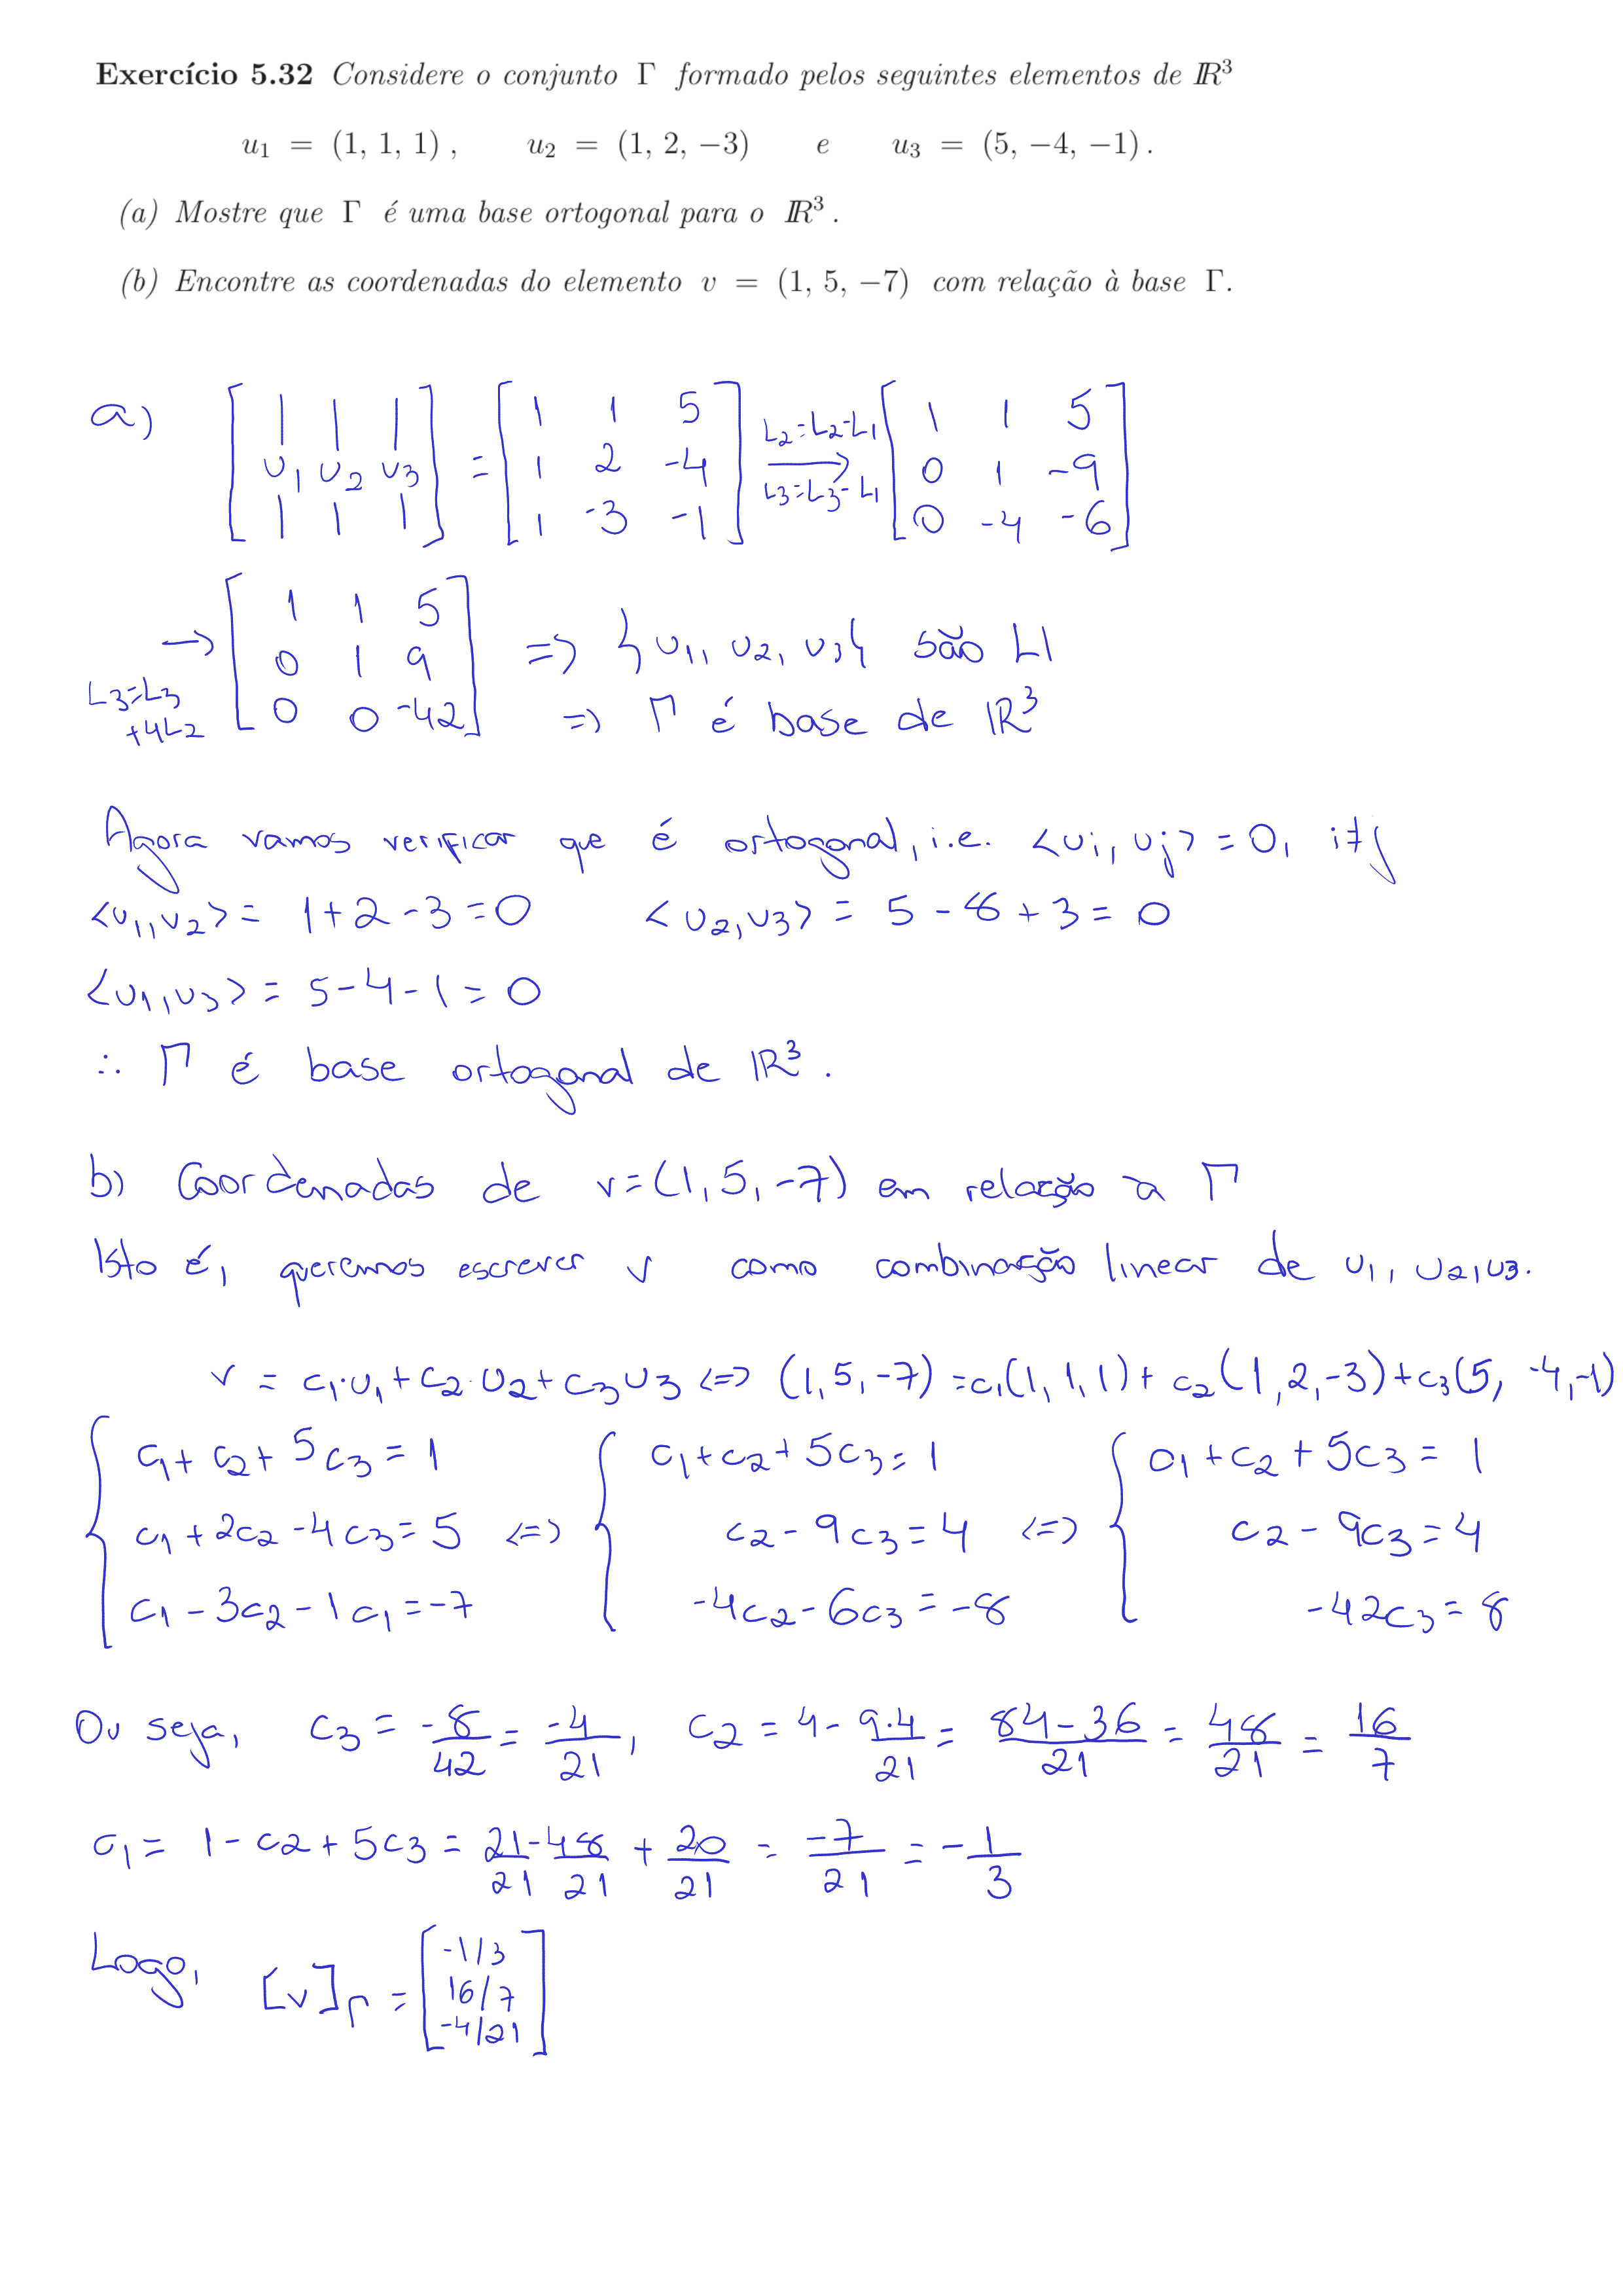 Exercício 5.32 Considere o conjunto Γ formado pelos seguintes elementos de ℝ³
u₁ = (1, 1, 1) , u₂ = (1, 2, −3) e u₃ = (5, −4, −1) .
(a) Mostre que Γ é uma base ortogonal para o ℝ³ .
(b) Encontre as coordenadas do elemento v = (1, 5, −7) com relação à base Γ.
a) [ | | | ; u₁ u₂ u₃ ; | | | ] = [ 1 1 5 ; 1 2 -4 ; 1 -3 -1 ] L₂=L₂-L₁ → L₃=L₃-L₁ [ 1 1 5 ; 0 1 -9 ; 0 -4 -6 ]
→ L₃=L₃+4L₂ [ 1 1 5 ; 0 1 9 ; 0 0 -42 ] => {u₁, u₂, u₃} são LI
=> Γ é base de ℝ³
Agora vamos verificar que é ortogonal, i.e. <ui, uj> = 0, i≠j
<u₁,u₂> = 1+2-3=0 <u₂,u₃> = 5-8+3=0
<u₁,u₃> = 5-4-1=0
∴ Γ é base ortogonal de ℝ³.
b) Coordenadas de v=(1,5,-7) em relação a Γ
Isto é, queremos escrever v como combinação linear de u₁, u₂, u₃.
v = c₁·u₁+c₂·u₂+c₃u₃ <=> (1,5,-7)=c₁(1,1,1)+c₂(1,2,-3)+c₃(5,-4,-1)
{ c₁+c₂+5c₃=1 { c₁+c₂+5c₃=1 { c₁+c₂+5c₃=1
c₁+2c₂-4c₃=5 <=> c₂-9c₃=4 <=> c₂-9c₃=4
c₁-3c₂-1c₁=-7 -4c₂-6c₃=-8 -42c₃=8
Ou seja, c₃ = -8/42 = -4/21, c₂ = 4-9·4/21 = 84-36/21 = 48/21 = 16/7
c₁ = 1-c₂+5c₃ = 21/21-48/21+20/21 = -7/21 = -1/3
Logo, [v]Γ = [ -1/3 ; 16/7 ; -4/21 ]